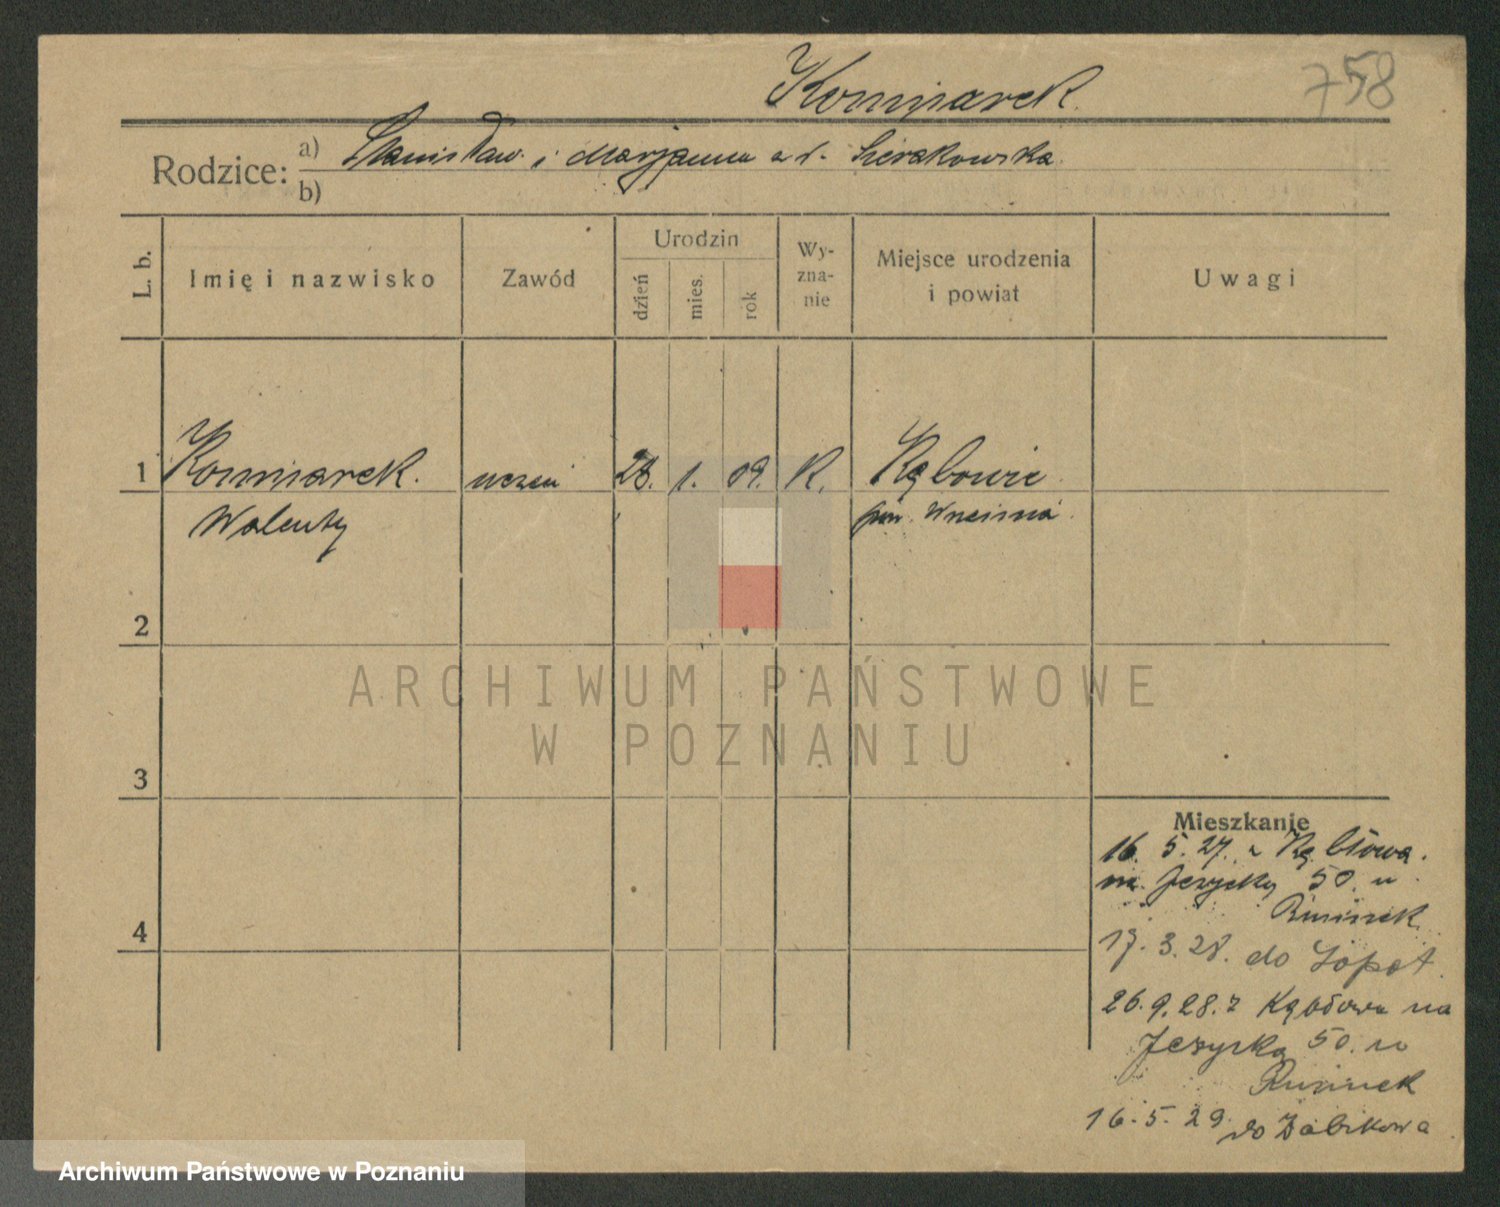 Kominarek.
758
Rodzice: a) Stanisław i Marjanna z d. Sierakowska
b)
L. b.
Imię i nazwisko
Zawód
Urodzin
dzień
mies.
rok
Wy-
zna-
nie
Miejsce urodzenia
i powiat
Uwagi
1 Kominarek. uczeń 28. 1. 09. K.
Walenty
pow. Września
2
3
4
ARCHIWUM PAŃSTWOWE
W POZNANIU
Mieszkanie
16. 5. 27. z Kębłowa.
na Jeżycką 50. u
17. 3. 28. do Sopot.
26. 9. 28. z Kębłowa na
Jeżycką 50. u
16. 5. 29. do Żabikowa
Archiwum Państwowe w Poznaniu